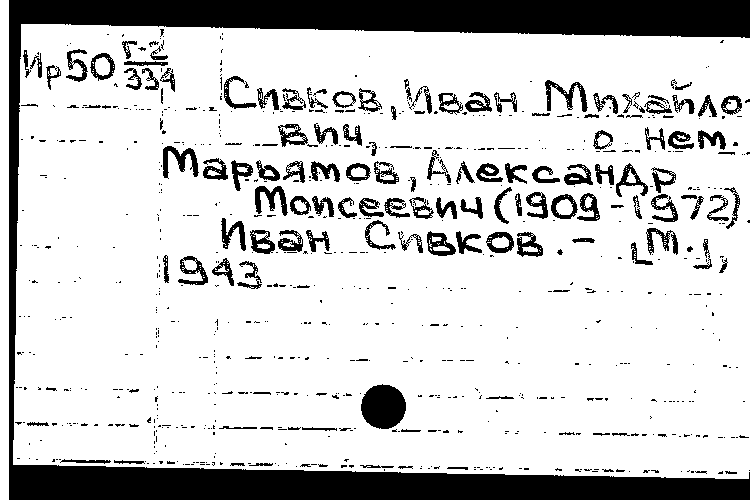 Ир50 Г-2
334
Сивков, Иван Михайло-
вич, о нем.
Марьямов, Александр
Моисеевич (1909-1972).
Иван Сивков. – [М.],
1943